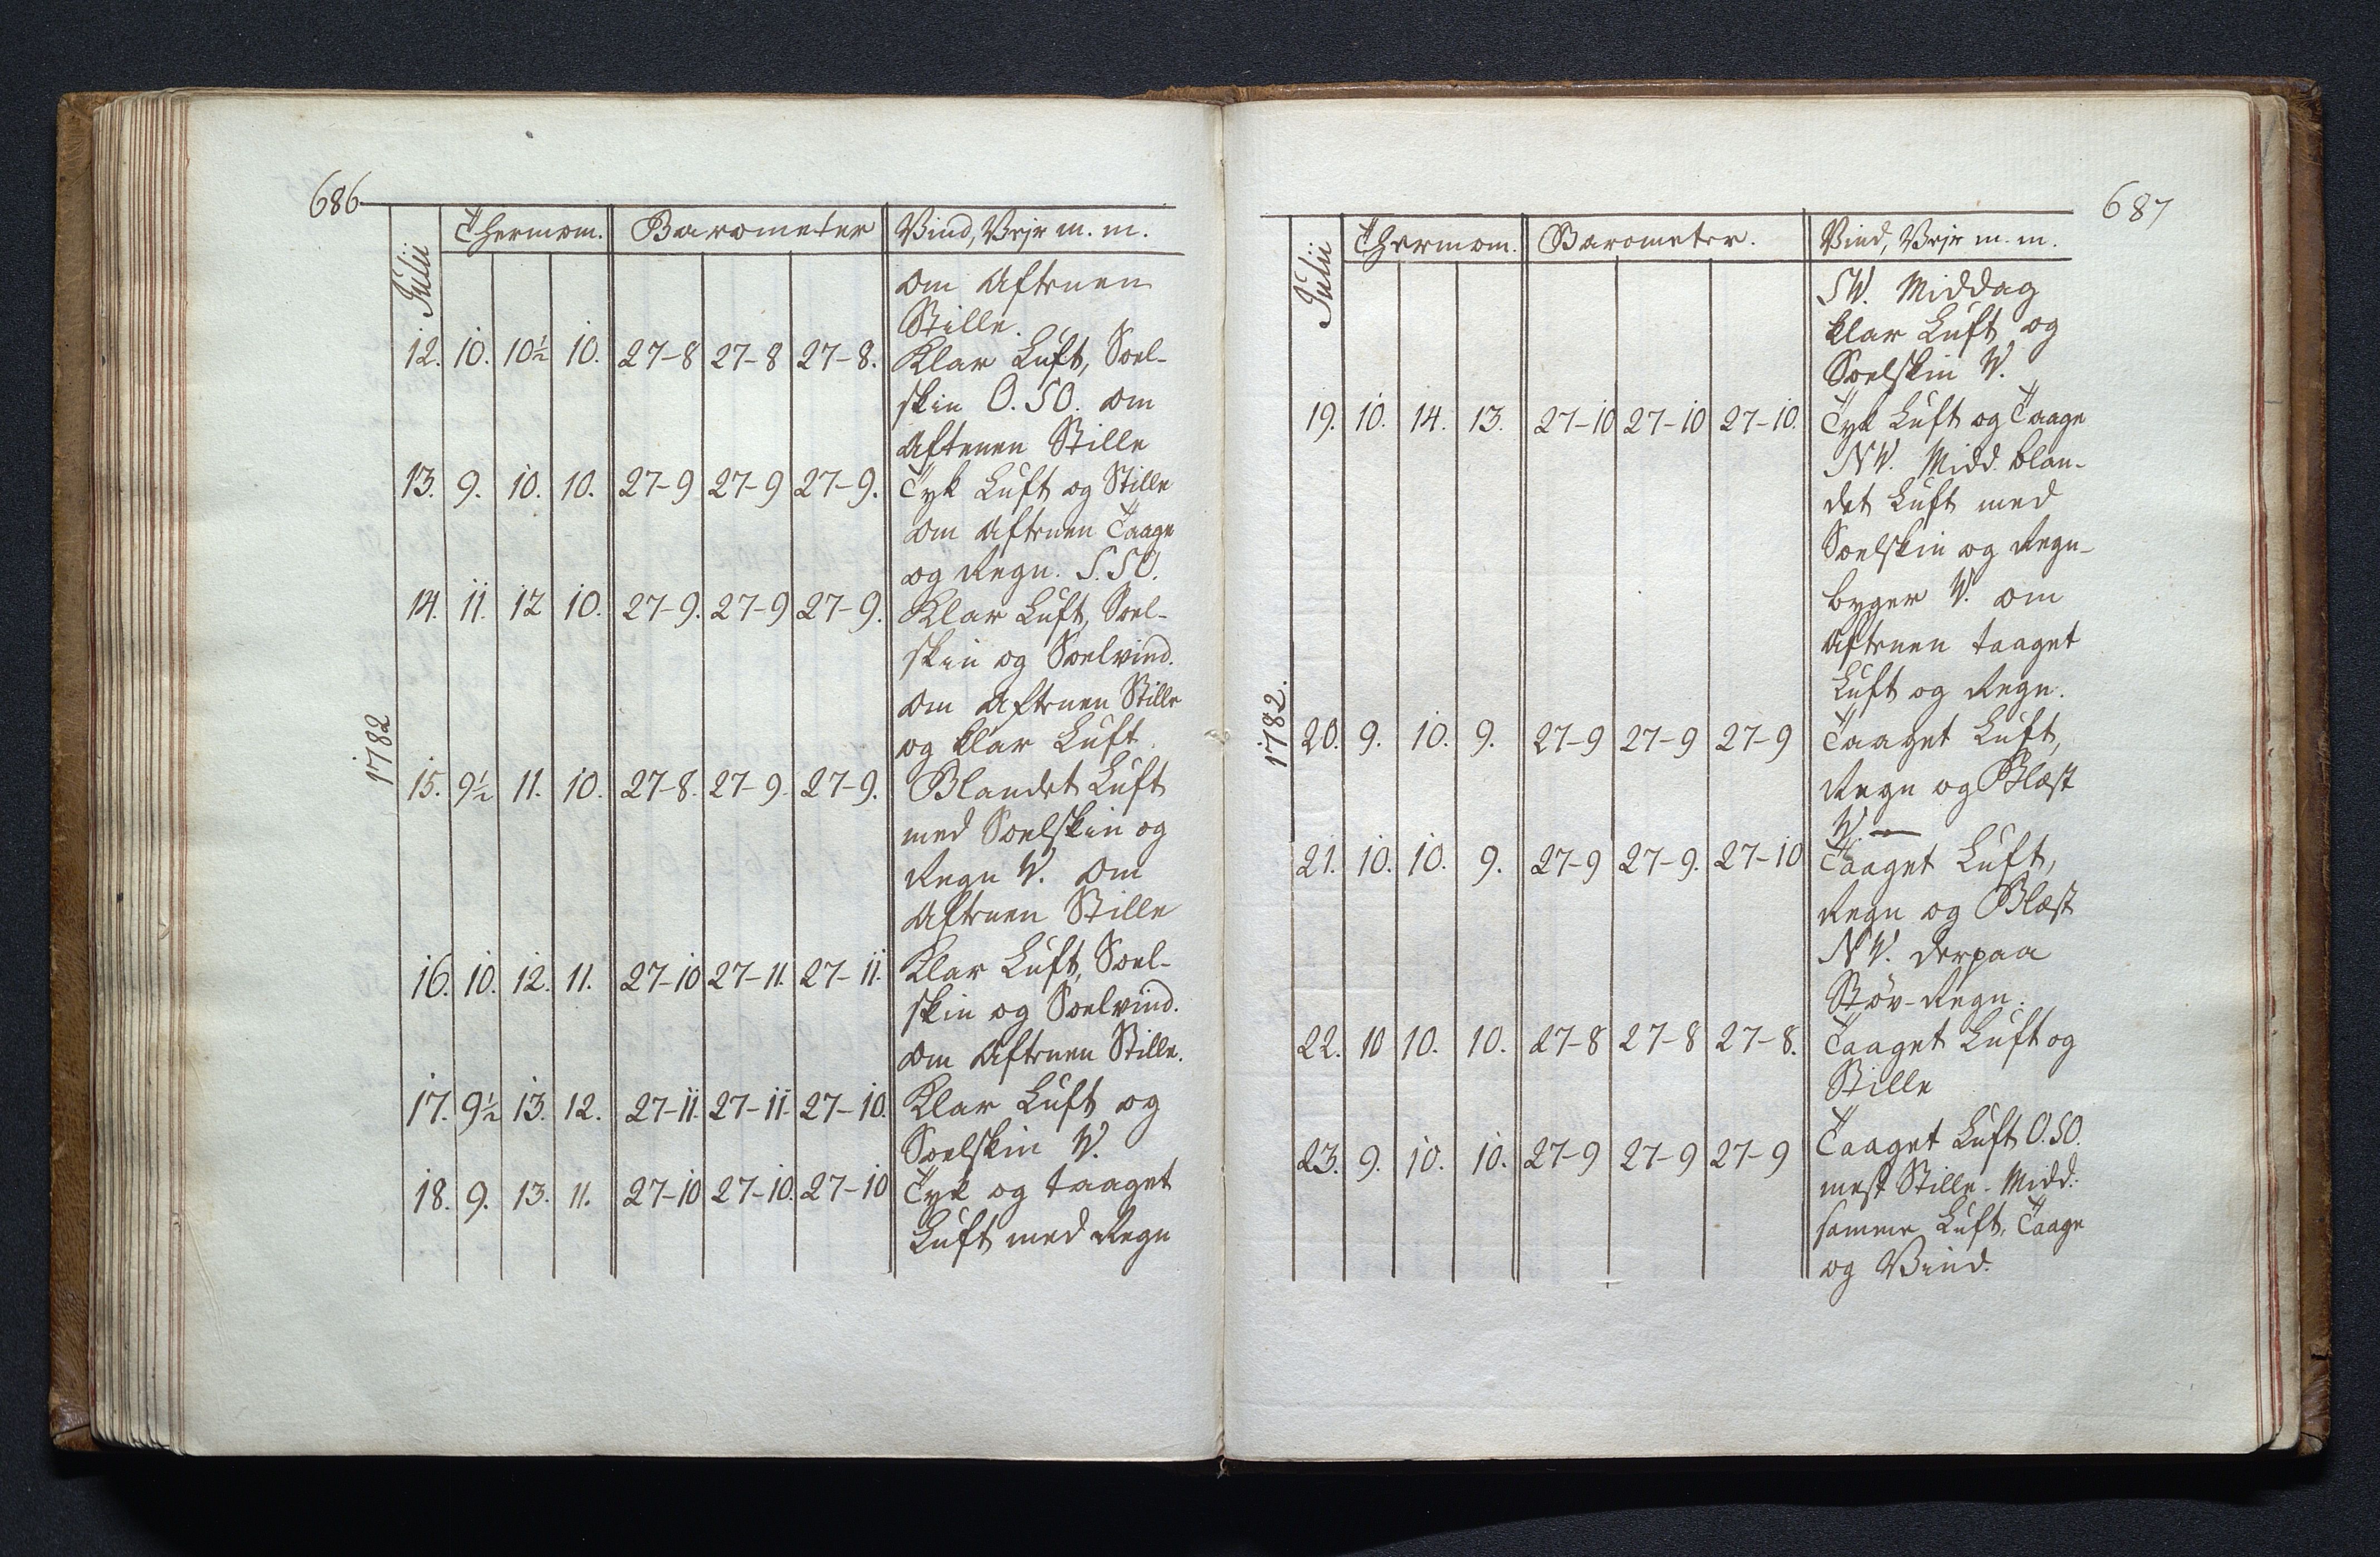 686
Julii Thermom. Barometer Vind, Vejr m. m.
om Aftenen
Stille.
12. 10. 10½ 10. 27-8 27-8 27-8. Klar Luft, Soel-
skin O. SO. om
Aftenen Stille
13. 9. 10. 10. 27-9 27-9 27-9. Tyk Luft og Stille
om Aftenen Taage
og Regn. S. SO.
14. 11. 12 10. 27-9. 27-9 27-9. Klar Luft, Soel-
skin og Soelvind.
om Aftenen Stille
og klar Luft.
1782
15. 9½ 11. 10. 27-8. 27-9. 27-9. Blandet Luft
med Soelskin og
Regn V. om
Aftenen Stille
16. 10. 12. 11. 27-10 27-11. 27-11. Klar Luft, Soel-
skin og Soelvind.
om Aftenen Stille.
17. 9½ 13. 12. 27-11. 27-11. 27-10. Klar Luft og
Soelskin V.
18. 9. 13. 11. 27-10 27-10. 27-10 Tyk og taaget
Luft med Regn
687
Julii Thermom. Barometer. Vind, Vejr m. m.
SV. Middag
klar Luft og
Soelskin V.
19. 10. 14. 13. 27-10 27-10 27-10. Tyk Luft og Taage
NV. Midd. blan-
det Luft med
Soelskin og Regn-
byger V. om
Aftenen taaget
Luft og Regn.
1782.
20. 9. 10. 9. 27-9 27-9 27-9 Taaget Luft,
Regn og Blæst
V. —
21. 10. 10. 9. 27-9 27-9. 27-10 Taaget Luft,
Regn og Blæst
NV. derpaa
Støv-Regn.
22. 10 10. 10. 27-8 27-8 27-8. Taaget Luft og
Stille
23. 9. 10. 10. 27-9 27-9 27-9 Taaget Luft O. SO.
mest Stille. Midd.
samme Luft, Taage
og Vind.